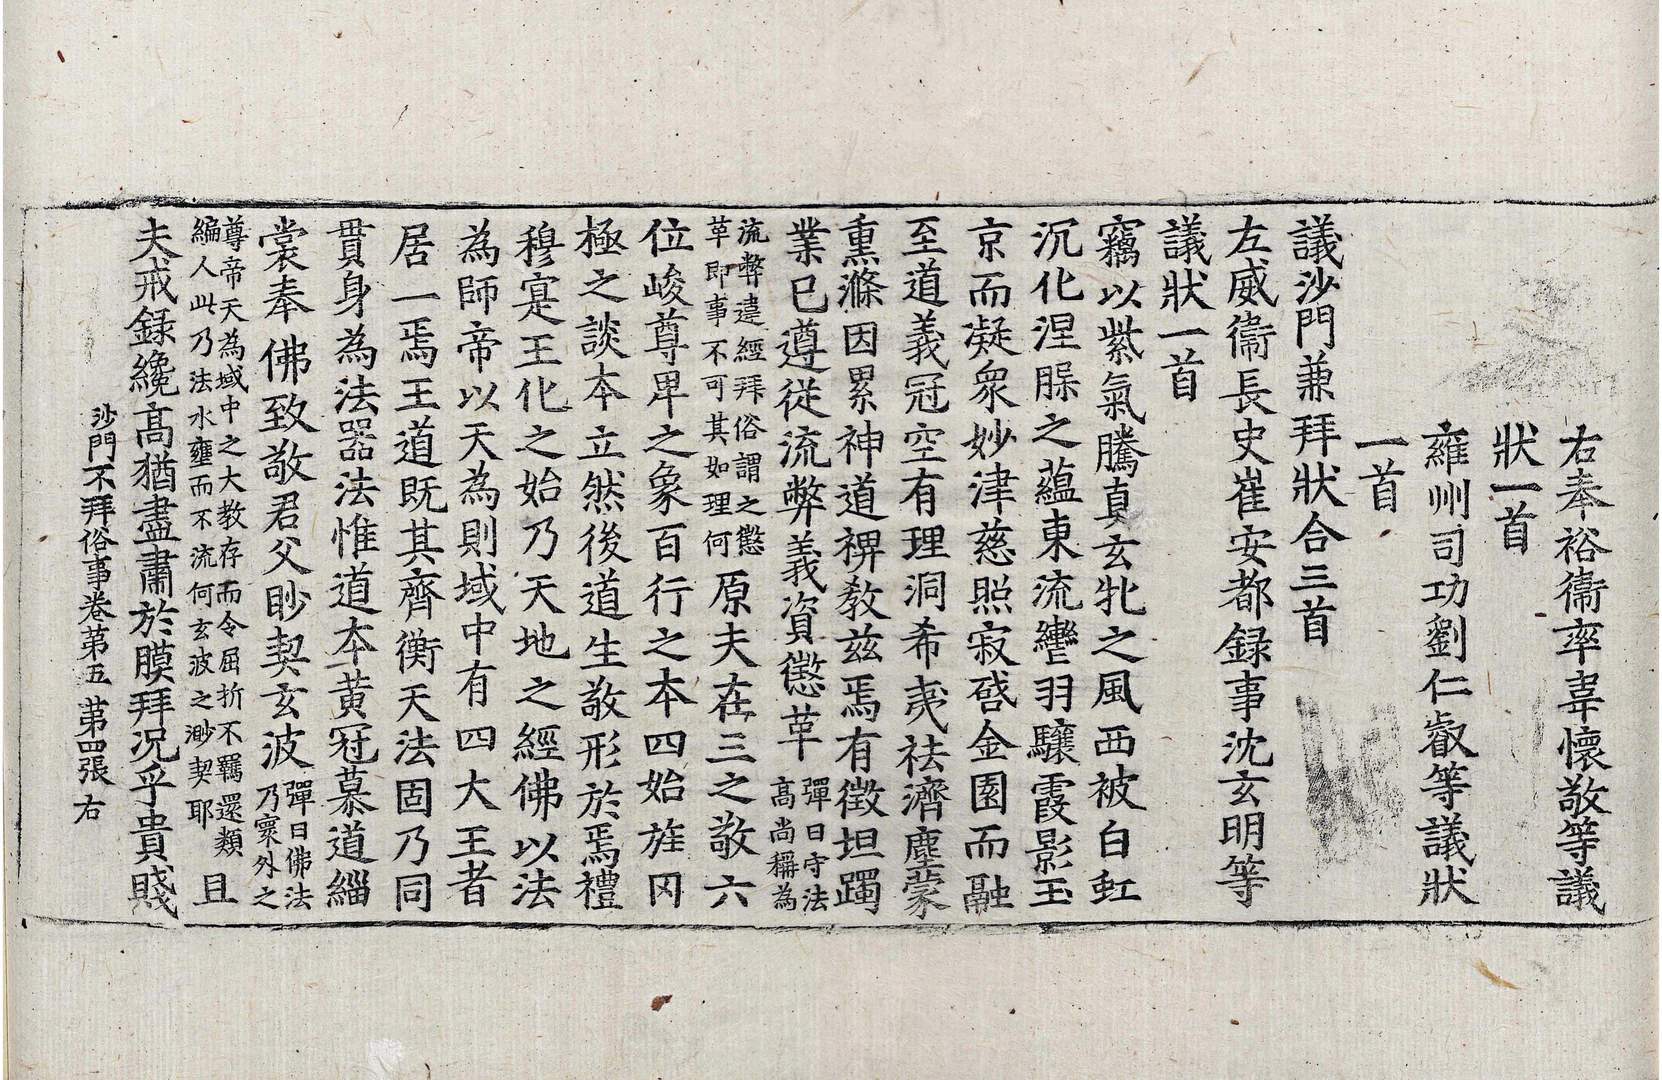 右奉裕衞率韋懷敬等議
狀一首
雍州司功劉仁叡等議狀
一首
議沙門兼拜狀合三首
左威衞長史崔安都録事沈玄明等
議狀一首
竊以紫氣騰真玄牝之風西被白虹
沉化涅𦞦之蘊東流轡羽驤霞影玉
京而凝衆妙津慈照寂啓金園而融
至道義冠空有理洞希夷祛濟塵蒙
熏滌因累神道裨教兹焉有徵坦躅
業已遵從流弊義資懲革彈曰守法高尚稱為
流弊違經拜俗謂之懲革即事不可其如理何原夫在三之敬六
位峻尊卑之象百行之本四始旌冈
極之談本立然後道生敬形於焉禮
穆寔王化之始乃天地之經佛以法
為師帝以天為則域中有四大王者
居一焉王道既其齊衡天法固乃同
貫身為法器法惟道本黄冠慕道緇
裳奉佛致敬君父眇契玄波彈曰佛法乃寰外之
尊帝天為域中之大教存而令屈折不羈還類編人此乃法水壅而不流何玄波之渺契耶且
夫戒録纔髙猶盡肅於膜拜況乎貴賤
沙門不拜俗事卷苐五 苐四張 右